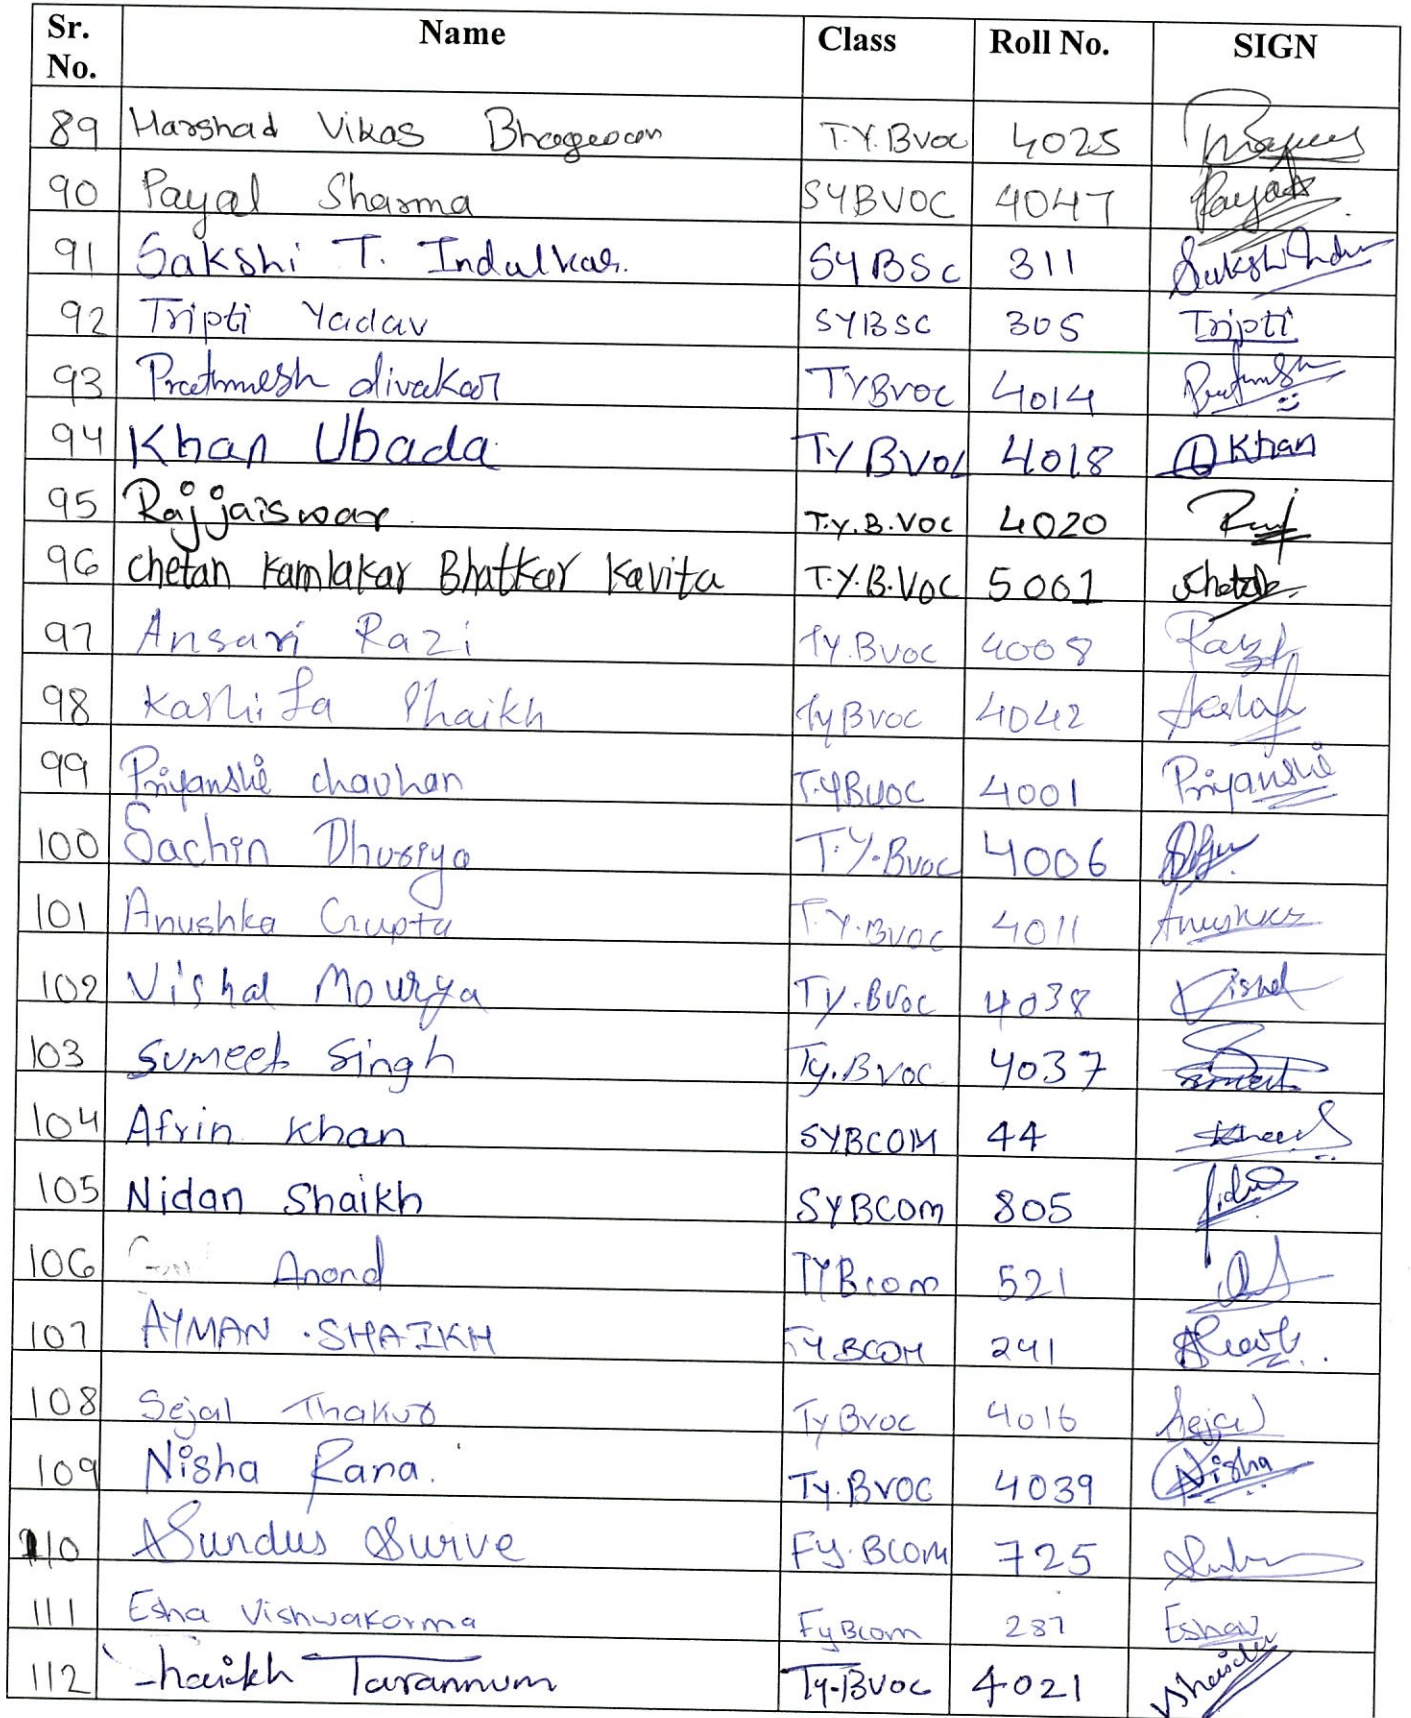 Sr. No. Name Class Roll No. SIGN
89 Harshad Vikas T.Y.Bvoc 4025
90 Payal Sharma SYBVOC 4047 Payal
91 Sakshi T. Indulkar. SYBSc 311 Sakshi
92 Tripti Yadav SYBSC 305 Tripti
93 Prathmesh divakar TYBVOC 4014
94 Khan Ubada TYBVOC 4018 Khan
95 Raj jaiswar T.Y.B.VOC 4020 Raj
96 chetan Kamlakar Bhatkar Kavita T.Y.B.VOC 5001
97 Ansari Razi Ty.Bvoc 4008
98 Kashifa Shaikh TyBvoc 4042
99 Priyanshi chauhan T.YBVOC 4001 Priyanshi
100 Sachin Dhuriya T.Y.Bvoc 4006
101 Anushka Gupta T.Y.BVOC 4011
102 Vishal Mourya Ty.Bvoc 4038 Vishal
103 Sumeet Singh Ty.Bvoc 4037
104 Afrin Khan SYBCOM 44
105 Nidan Shaikh SYBCom 805
106 Anand TYBcom 521
107 AYMAN SHAIKH TYBCOM 241
108 Sejal Thakur TyBvoc 4016 Sejal
109 Nisha Rana. Ty.BVOC 4039 Nisha
110 Sundus Surve FY.BCom 725
111 Esha Vishwakarma FyBcom 287
112 Tarannum Ty-BVOC 4021